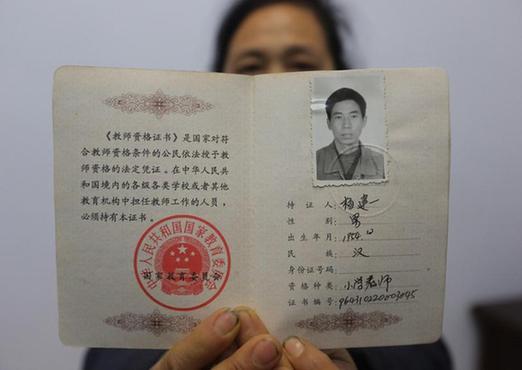 《教师资格证书》是国家对符
合教师资格条件的公民依法授予教
师资格的法定凭证。在中华人民共
和国境内的各级各类学校或者其他
教育机构中担任教师工作的人员，
必须持有本证书。
中华人民共和国国家教育委员会
国家教育委员会
持证人：杨建一
性别：男
出生年月：1954.12
民族：汉
身份证号码：
资格种类：小学教师
证书编号：964310220003045